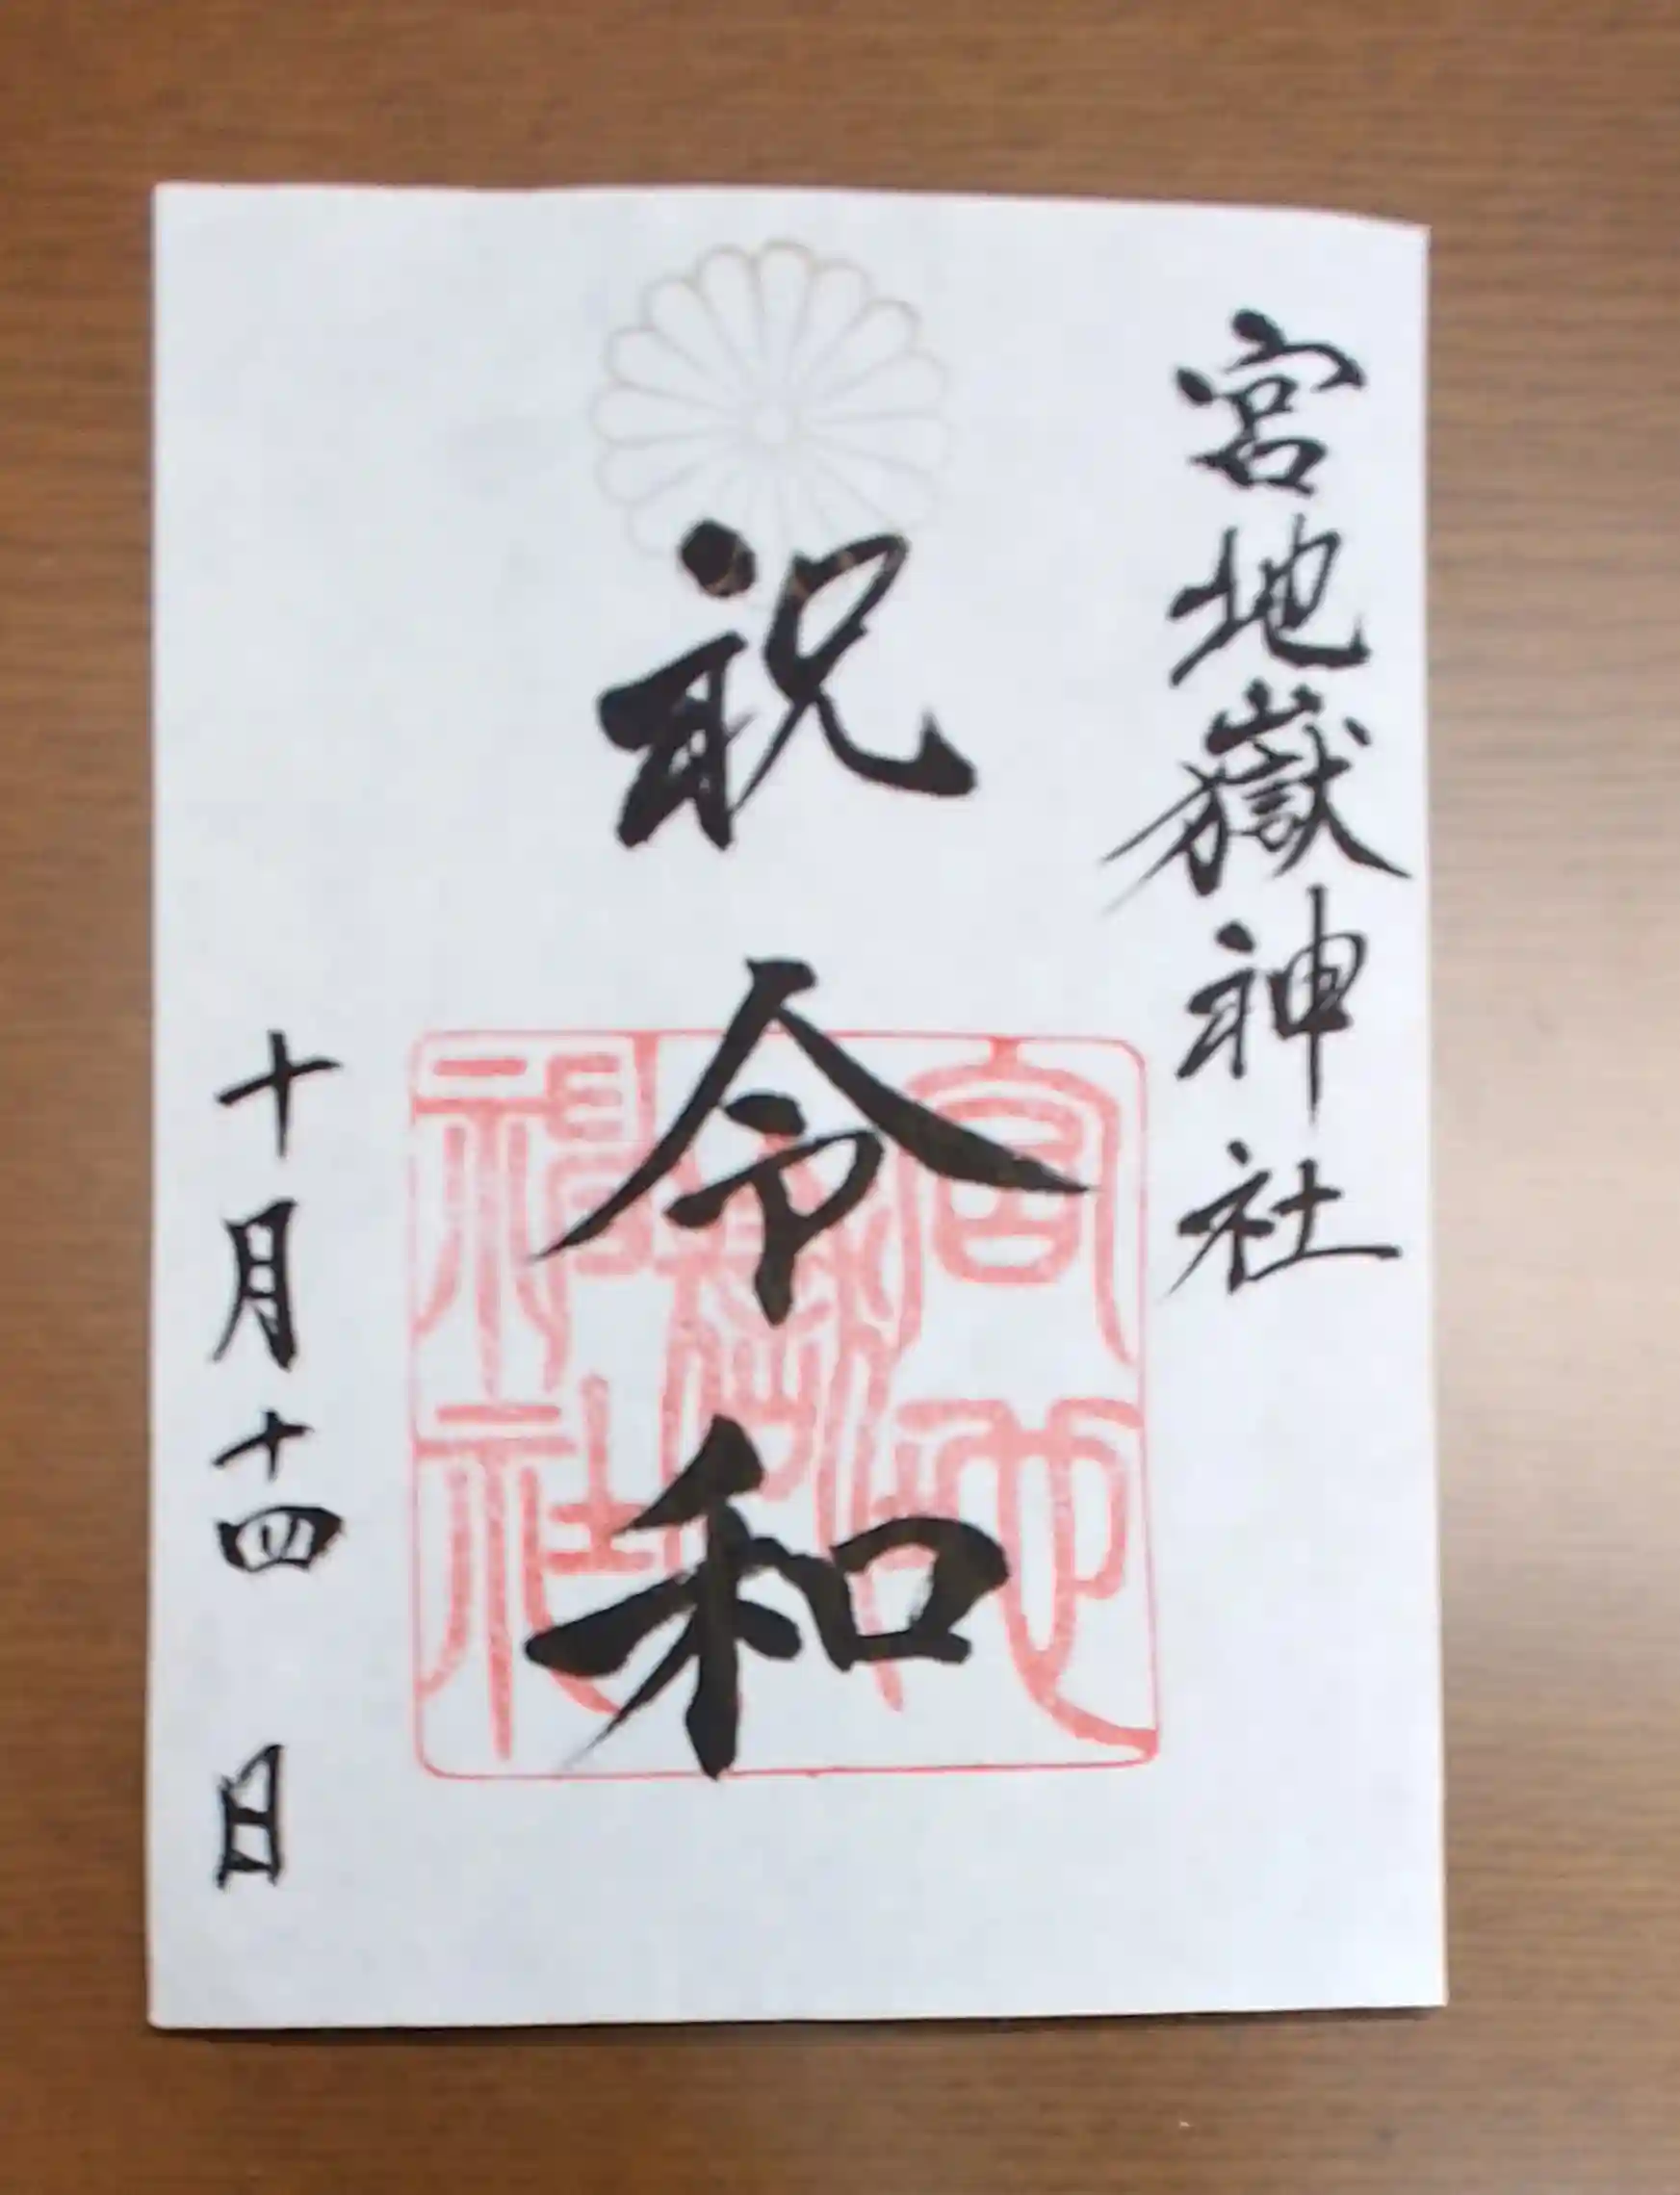 宮地嶽神社
祝 令和
宮地嶽神社
十月十四日